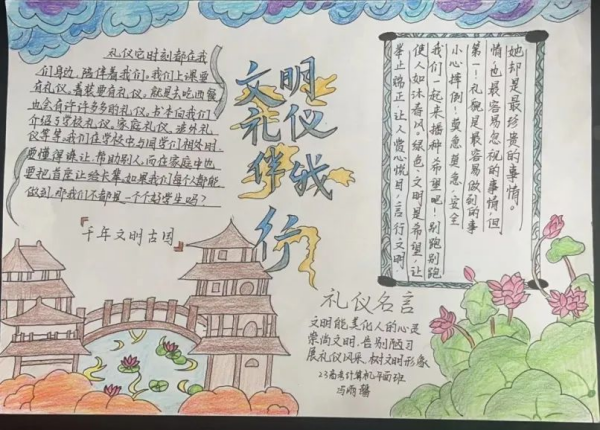 文明
礼仪
伴我
行
礼仪它时刻都在我
们身边,陪伴着我们,我们上课要
有礼仪,着装要有礼仪,就是去吃西餐
也会有许许多多的礼仪。书本向我们
介绍了学校礼仪,家庭礼仪,涉外礼
仪等等。我们在学校 同学们相处时
要懂得谦让,帮助别人,而在家庭中也
要把首座让给长辈。如果我们每个人都能
做到,那我们不都是一个个好学生吗?
千年文明古国
举止端正,让人赏心悦目,言行文明
使人如沐春风。绿色,文明是希望,让
我们一起来播种,希望吧!别跑别跑
小心摔倒!莫急莫急,安全
第一!礼貌是最容易做到的事
情,也最容易忽视的事情,但
她却是最珍贵的事情。
礼仪名言
文明能美化人的心灵
崇尚文明,告别陋习
展礼仪风采,树文明形象
23高考计算机平面班